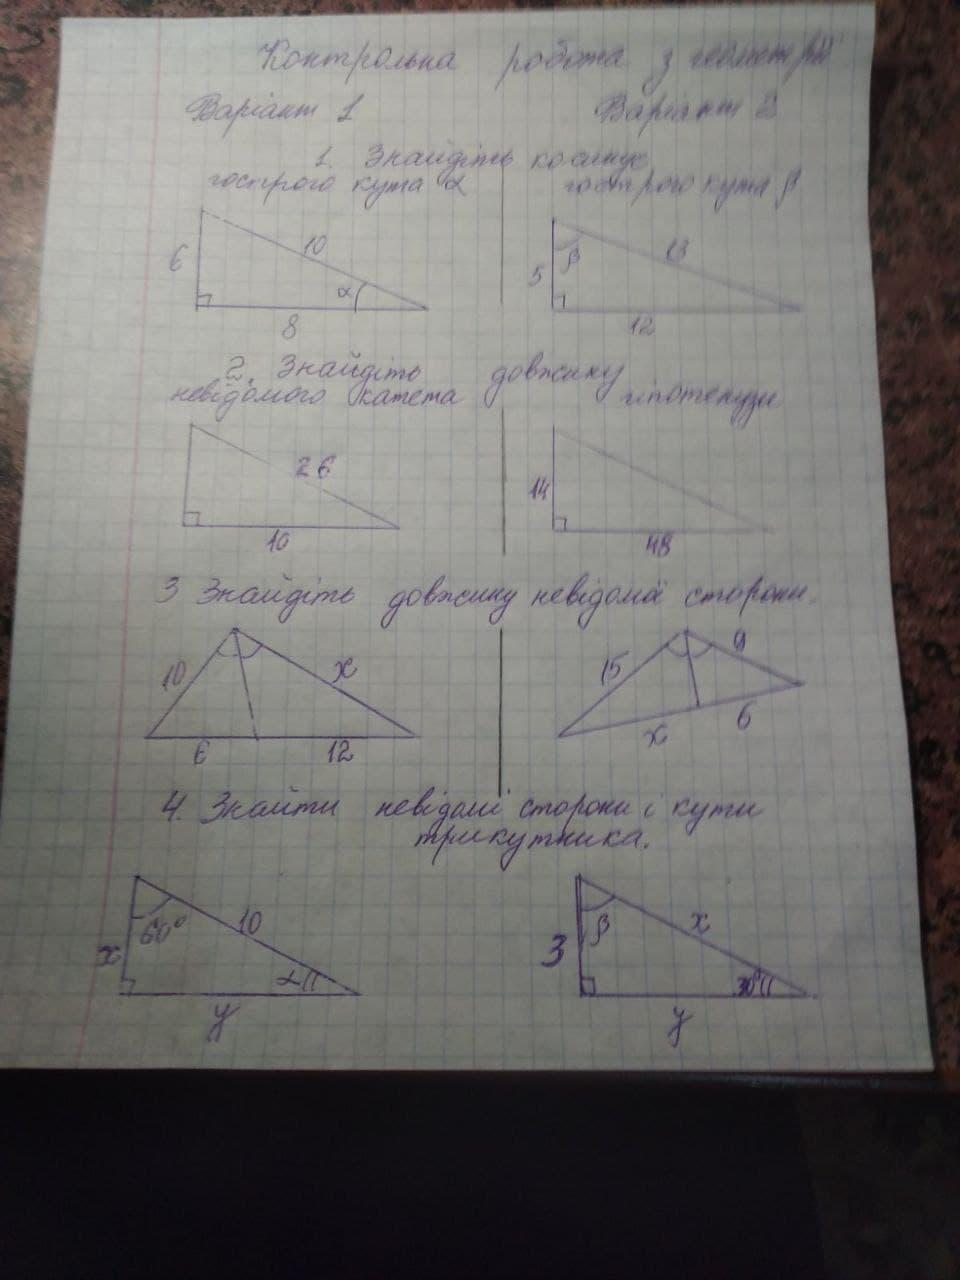 Контрольна робота з геометрії
Варіант 1 Варіант 2
1. Знайдіть косинус
гострого кута α гострого кута β
6 10 α 8
5 β 13 12
2. Знайдіть довжину
невідомого катета гіпотенузи
26 10
14 48
3 Знайдіть довжину невідомої сторони.
10 x 6 12
15 9 x 6
4. Знайти невідомі сторони і кути
трикутника.
x 60° 10 α y
3 β x 30° y